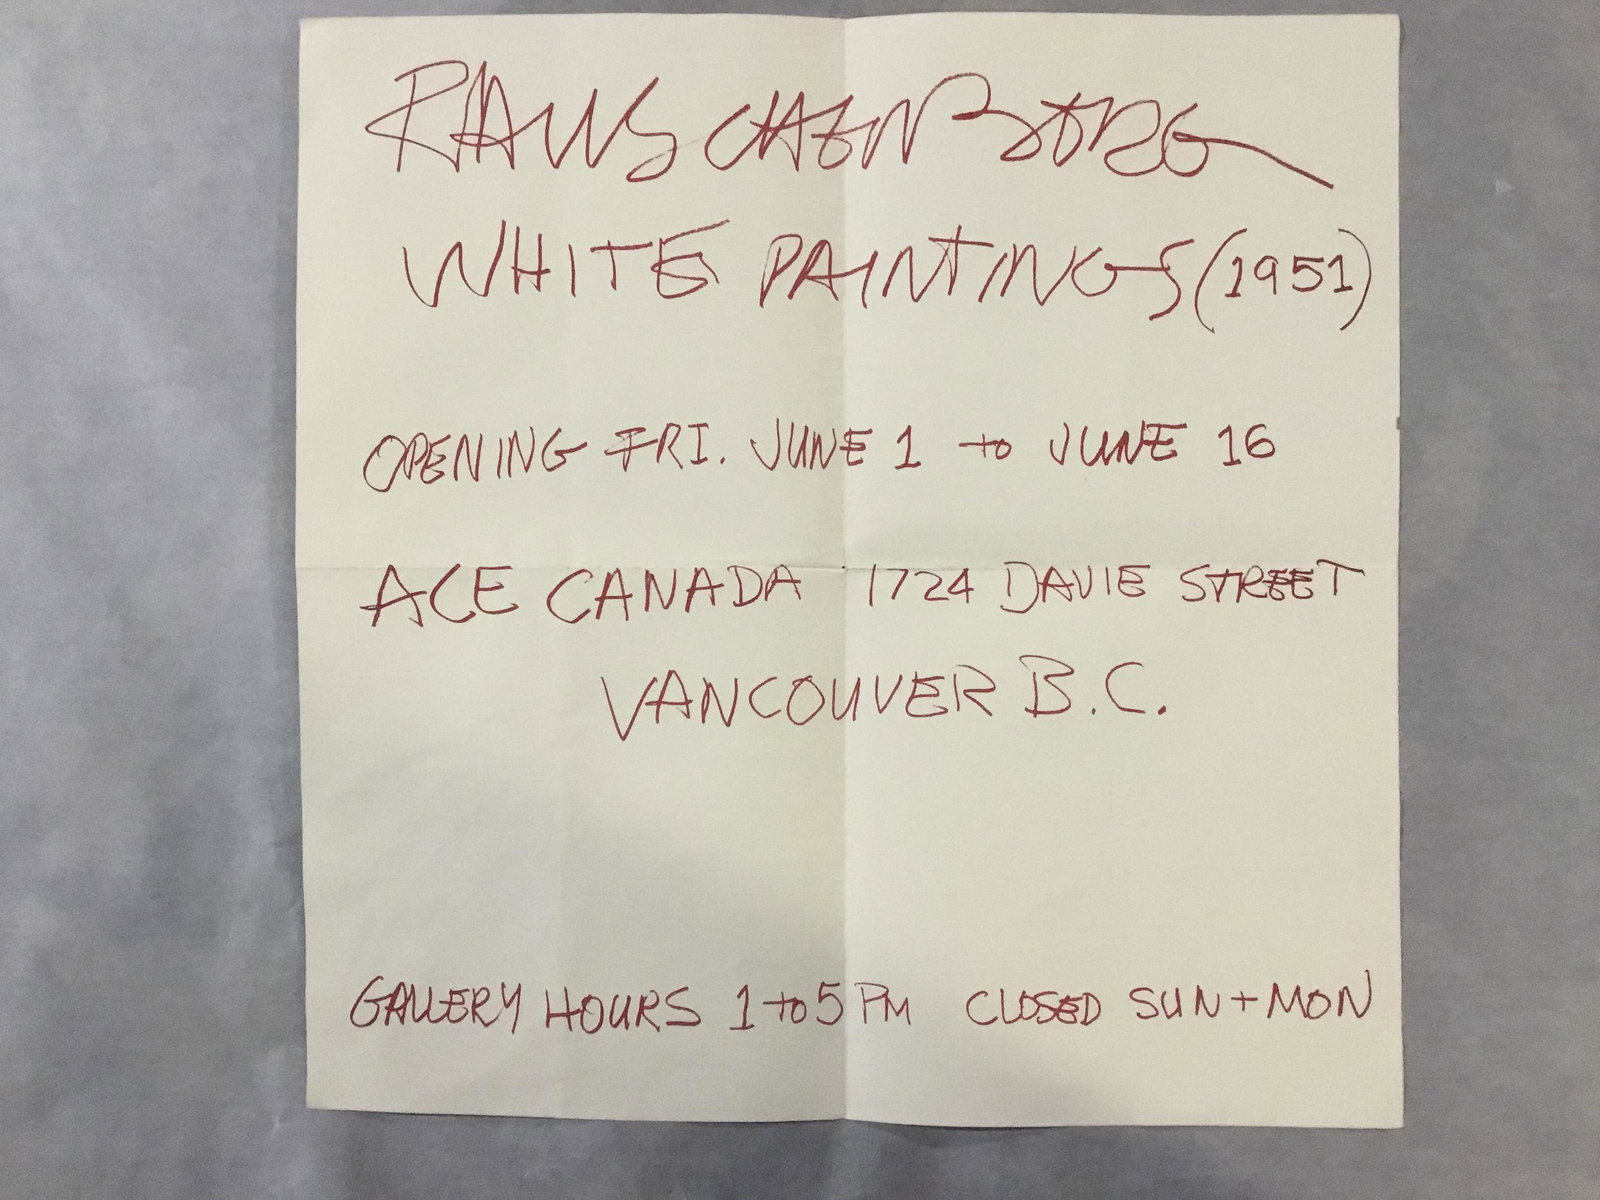 RAUSCHENBERG
WHITE PAINTINGS (1951)
OPENING FRI. JUNE 1 to JUNE 16
ACE CANADA 1724 DAVIE STREET
VANCOUVER B.C.
GALLERY HOURS 1 to 5 PM CLOSED SUN + MON